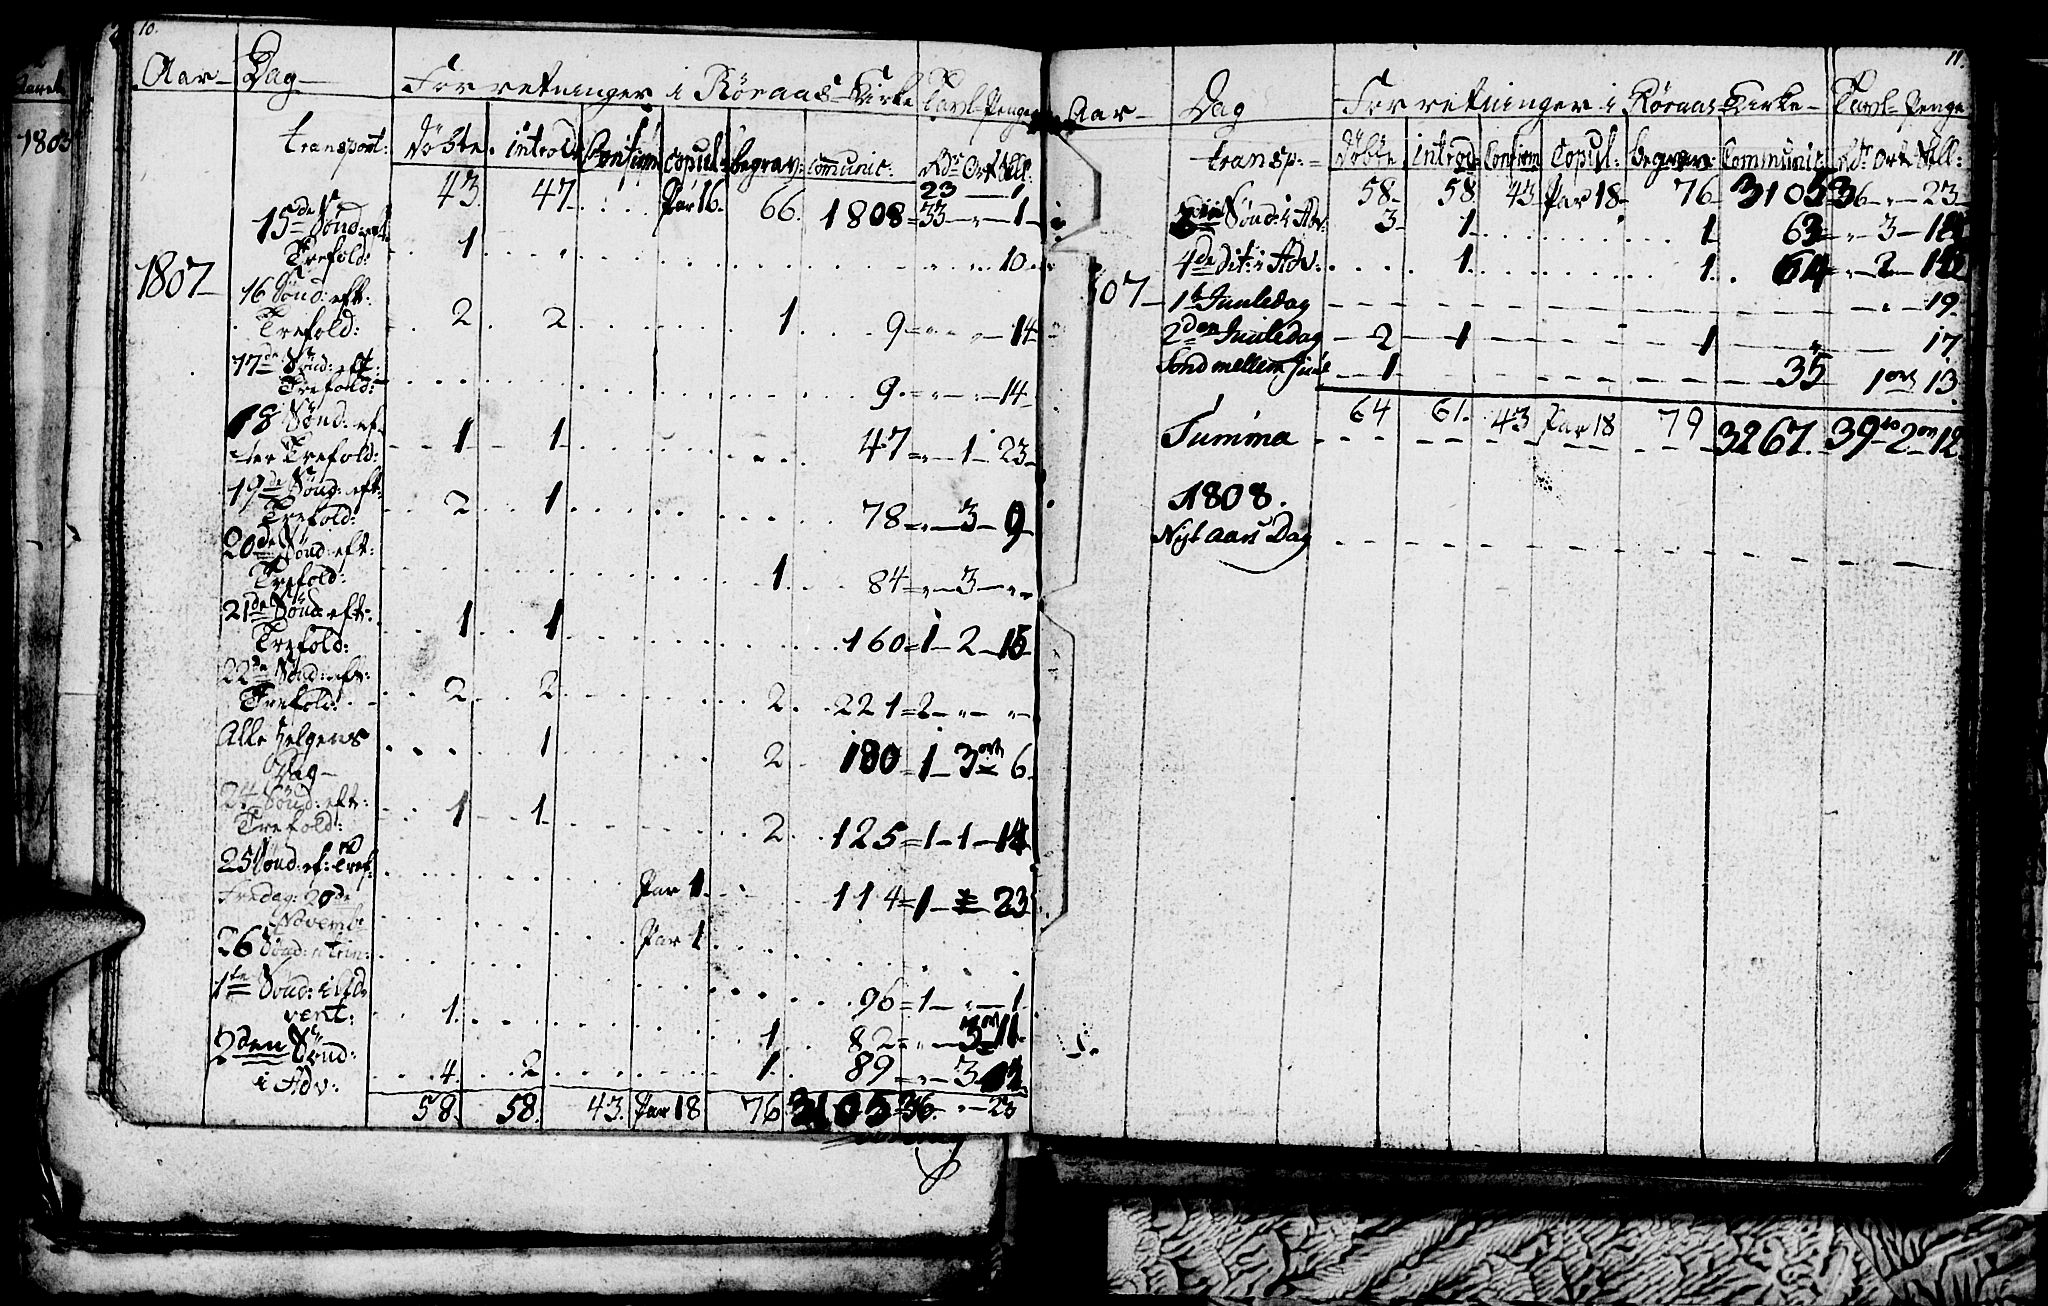 10.
Aar Dag Forretninger i Röraas Kirke Tavl-Penge
transport: döbte. introd: Confirm copul: begrav: Comunic: Rdr Ort skll:
43. 47. Par 16. 66. 1808 = 33 — „ — 1
15de Sönd: eft.
Trefold: 1 „ „ „ 10
1807
16 Sönd: eft:
Trefold: 2 2 1 9 = „ — „ — 14
17de Sönd: eft:
Trefold: 9 „ — „ — 14
18 Sönd: ef-
ter Trefold: 1 1 47 = „ — 1 — 23
19de Sönd: eft:
Trefold: 2 1 78 = „ — 3 — 9
20de Sönd: eft:
Trefold: 1 84 = „ — 3 — „
21de Sönd: eft:
Trefold: 1 1 160 = 1 — 2 — 15
22de Sönd: eft:
Trefold: 2 2 2 221 = 2 — „ — „
Alle Helgens
Dag 1 2 180 = 1 — 3ort 6
24 Sönd: eft:
Trefold: 1 1 2 125 = 1 — 1 — 14
25 Sönd: ef: Tref: Par 1 114 = 1 — 23
Fredag: 20de
Novemb: Par 1
26 Sönd: Trin: 96 = 1 — „ — 1
1te Sönd: i Ad-
vent: 1 1 82 = „ — 3ort 11
2den Sönd:
i Adv: 4 2 1 89 = „ — 3
58. 58. 43. Par 18 76 3105 36 „ — 23
11.
Aar Dag Forretninger i Röraas Kirke Tavl-Penge
transp: döbte introd: Confirm Copul: begrav: Communic: Rdr Ort skll:
58 58 43 Par 18 76 3105 36 „ 23
Sönd: i Adv: 3 1 1 63 „ 3
4de dit: i Adv: 1 1 64 „ 2
07 1te Juuledag „ 19
2den Juuledag 2 1 1 „ 17
Sönd mellem Juul 1 35 1ort 13
Summa 64 61 43 Par 18 79 3267 39 2 12
1808.
Nyt aars Dag